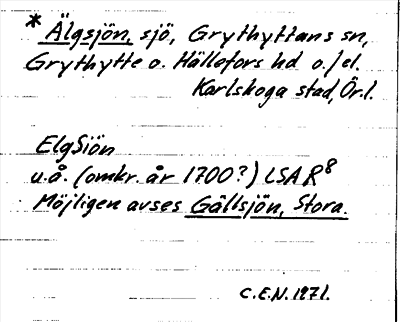 * Älgsjön, sjö, Grythyttans sn,
Grythytte o. Hällefors hd o./el.
Karlskoga stad, Ör.l.
ElgSiön
u.å. (omkr. år 1700?) LSA R8
Möjligen avses Gällsjön, Stora.
C.E.N. 1971.